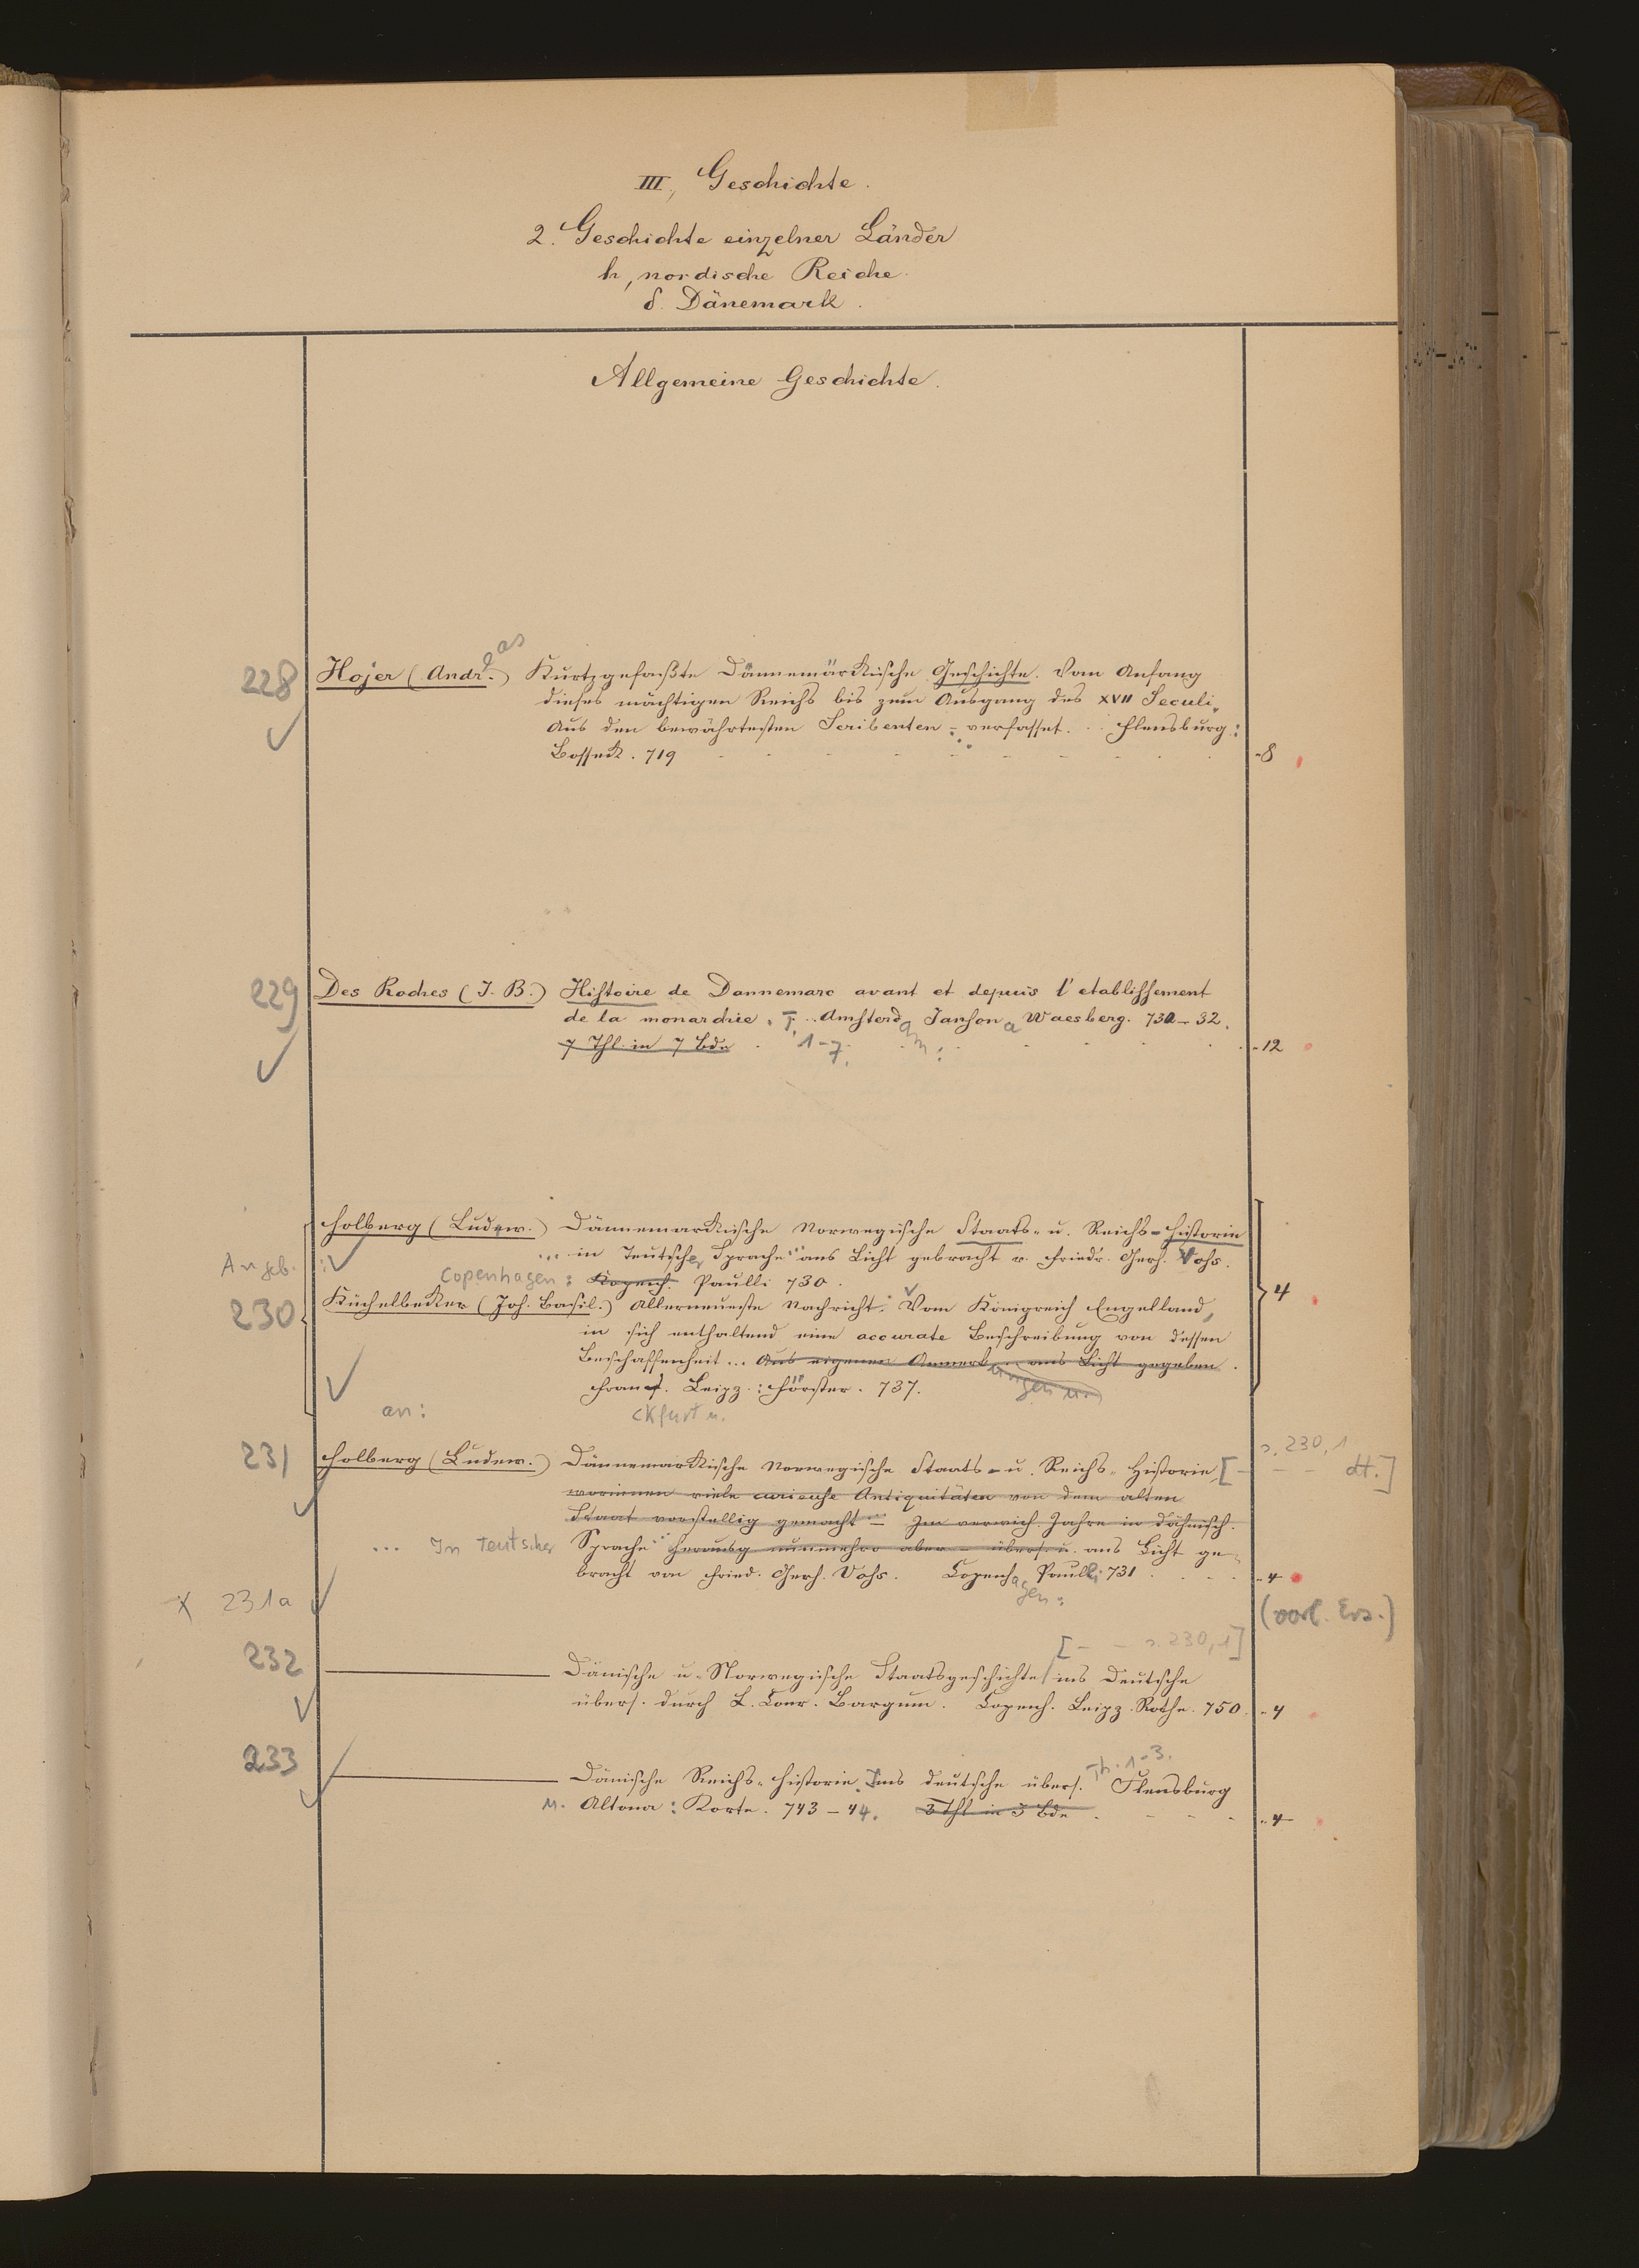 III, Geschichte.
2. Geschichte einzelner Länder
h, nordische Reiche.
δ. Dänemark.
Allgemeine Geschichte.
228 Hojer (Andreas) Kurtzgefaßte Dännemärkische Geschichte. Vom Anfang
dieses mächtigen Reichs bis zum Ausgang des XVII Seculi.
Aus den bewährtesten Scribenten verfasset. Flensburg:
Bosseck. 719 - 8
229 Des Roches (J. B.) Histoire de Dannemarc avant et depuis l'etablissement
de la monarchie. T. 1-7. Amsterdam: Janson a Waesberg. 730-32.
7 Thl. in 7 Bdn - 12
Holberg (Ludew.) Dännemarkische Norwegische Staats- u. Reichs-Historie
Angeb. ... in Teutscher Sprache ans Licht gebracht v. Friedr. Gerh. Vohs.
Copenhagen: Kopenh. Paulli 730.
230 Küchelbeker (Joh. Basil.) Allerneueste Nachricht. Vom Königreich Engelland, 4
in sich enthaltend eine accurate Beschreibung von dessen
Beschaffenheit ... Aus eigenen Anmerkungen u. ans Licht gegeben.
Franckfurt u. Leipz.: Förster. 737.
an:
231 Holberg (Ludew.) Dännemarkische Norwegische Staats- u. Reichs-Historie, [- - - s. 230,1 dt.]
worinnen viele curieuse Antiquitäten von dem alten
Staat vorstellig gemacht - Im verwich. Jahre in dähnisch.
... In Teutscher Sprache herausg. nunmehro aber - übers. u. ans Licht ge-
bracht von Fried. Gerh. Vohs. Copenhagen: Paulli 731 - 4
x 231a (vorl. Ers.)
[- - s. 230,1]
232 Dänische u. Norwegische Staatsgeschichte ins Deutsche
übers. durch L. Conr. Bargum. Copenh. Leipz. Rothe. 750. - 4
233 Dänische Reichs-Historie. Ins deutsche übers. Th. 1-3. Flensburg
u. Altona: Korte. 743-44. 3 Thl in 3 Bdn - 4